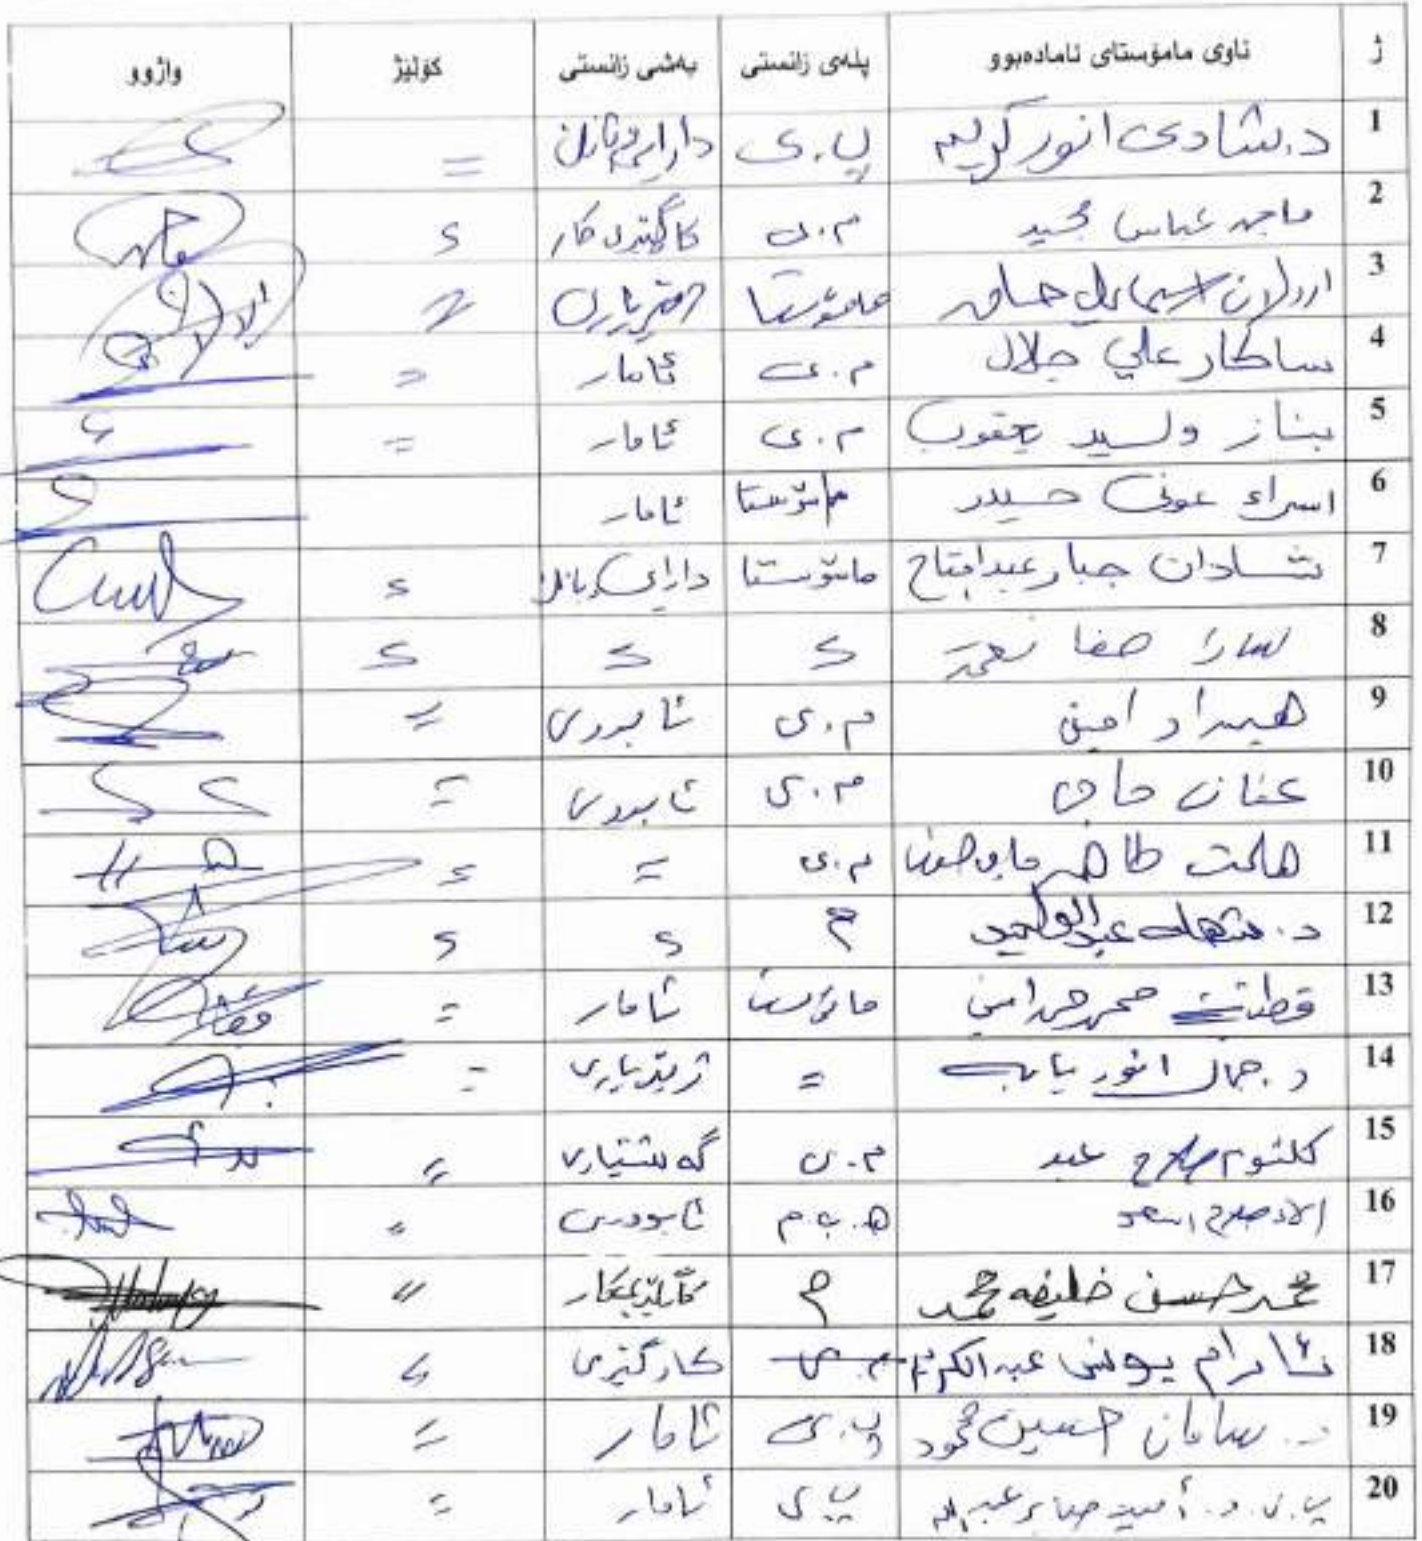 ژ ناوی مامۆستای ئامادەبوو پلەی زانستی بەشی زانستی کۆلیژ واژوو
1 د. شادی انور کریم پ.ی =
2 ماجد عباس مجید م.ی =
3 ارولان اسماعیل مامۆستا =
4 ساکار علي جلال م.ی ئامار =
5 بیناز ولید یعقوب م.ی ئامار =
6 اسراء عوني حیدر مامۆستا ئامار
7 شادان جبار عبدالفتاح مامۆستا دارایی وبانک =
8 سارا صفا = = =
9 هیمداد امین م.ی ئابوری =
10 عنان م.ی ئابوری =
11 هلمت طاهر م.ی = =
12 د. شهله م = =
13 محمد امین مامۆستا ئامار =
14 د. جمال انور = ژمێریاری =
15 کلثوم صلاح عبد م.ی گەشتیاری =
16 صلاح اسعد ه.ب.م ئابووری =
17 محمد حسن خلیفه محمد م =
18 ئارام یونس عبدالکریم م.ی کارگێری =
19 د. سامان حسین محمود پ.ی ئامار =
20 پ.ی.د. أمید صابر عبدالله پ.ی ئامار =